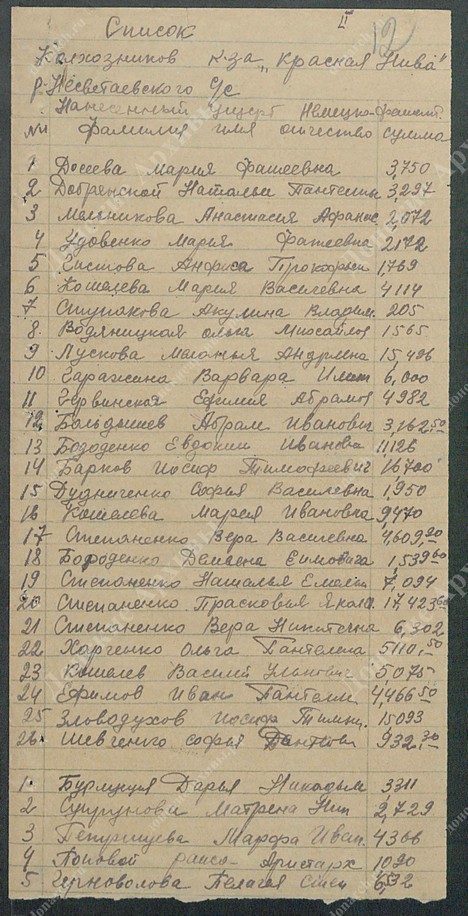 II 12
Список
Колхозников к-за „Красная Нива"
р-Несветаевского с/с
Нанесенный ущерб Немецко-фашист.
№ фамилия имя отчество сумма
1 Досева Мария Фатеевна 3,750
2 Добрянской Натальи Пантелии 3,297
3 Мельникова Анастасия Афанас 2,072
4 Удовенко Мария Фатеевна 2172
5 Анфиса Прокофьи 1769
6 Кошелева Мария Василевна 4114
7 Ступакова Акулина Владим. 205
8 Водяницкая Ольга Михайлов 1565
9 Пускова Меланья Андриевна 15,496
10 Гаражина Варвара 6,000
11 Червинская Ефимия Абрамов 4982
12 Болдышев Абрам Иванович 3,162.50
13 Бозоденко Евдокии Иванови 11126
14 Барков Иосиф Тимофеевич 16700
15 Дудниченко Софья Василевна 1,950
16 Кошелева Мария Ивановна 9,470
17 Степаненко Вера Василевна 4,609.20
18 Бороденко Ефимовига 1539.60
19 Степоненко Наталья Емельян 7,094
20 Степаненко Прасковья 17,423.60
21 Степаненко Вера Никитична 6,302
22 Харченко Ольга Пантелеина 5110.50
23 Кошелев Василий Ульянович 5,075
24 Ефимов Иван Пантели 4,466.50
25 Зловодухов Иосиф Тимини. 15093
26 Шевченко Софья 932.30
1 Дарья Никодым 3311
2 Матрена Ник 2,729
3 Марфа Иван. 4366
4 Поповой Аристарх 1020
5 Черноволова Пелагея 632